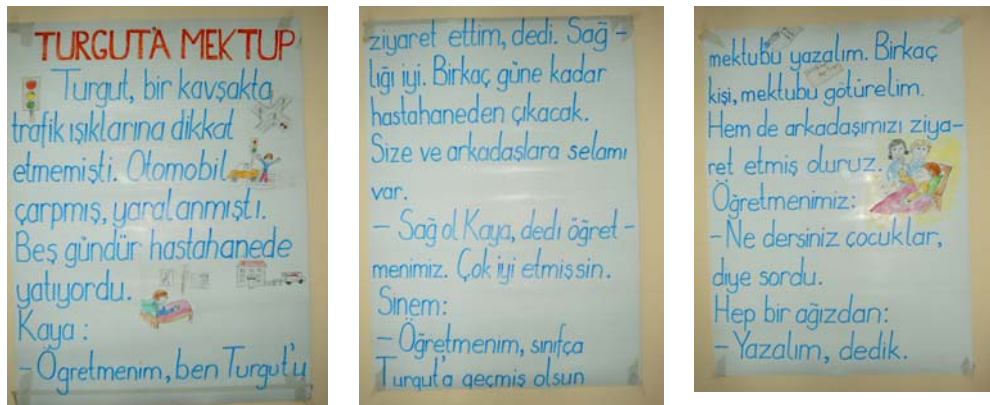 TURGUT'A MEKTUP
Turgut, bir kavşakta
trafik ışıklarına dikkat
etmemişti. Otomobil
çarpmış, yaralanmıştı.
Beş gündür hastahanede
yatıyordu.
Kaya :
- Öğretmenim, ben Turgut'u
ziyaret ettim, dedi. Sağ-
lığı iyi. Birkaç güne kadar
hastahaneden çıkacak.
Size ve arkadaşlara selamı
var.
- Sağ ol Kaya, dedi öğret-
menimiz. Çok iyi etmişsin.
Sinem:
- Öğretmenim, sınıfça
Turgut'a geçmiş olsun
mektubu yazalım. Birkaç
kişi, mektubu götürelim.
Hem de arkadaşımızı ziya-
ret etmiş oluruz.
Öğretmenimiz:
- Ne dersiniz çocuklar,
diye sordu.
Hep bir ağızdan:
- Yazalım, dedik.